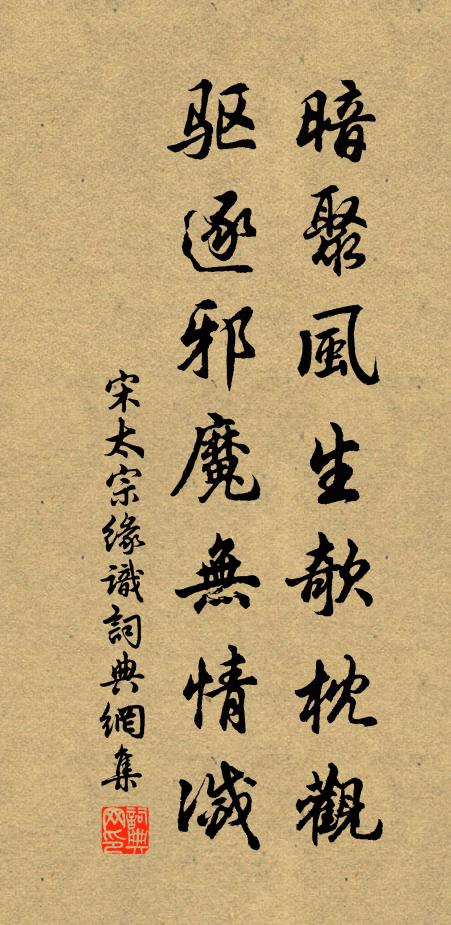 暗聚風生欹枕觀
驱逐邪魔無情滅
宋太宗緣識詞典網集
詞典网印